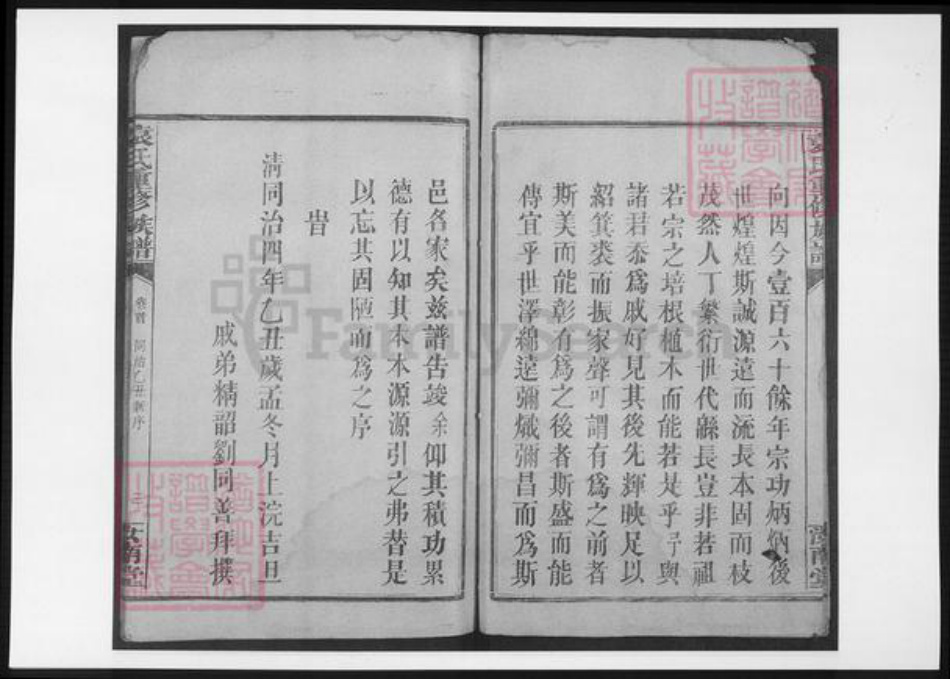 向因今壹百六十餘年宗功炳炳後
世煌煌斯誠源遠而流長本固而枝
茂然人丁繁衍世代緜長豈非若祖
若宗之培根植本而能若是乎予與
諸君忝爲戚好見其後先輝映足以
紹箕裘而振家聲可謂有爲之前者
斯美而能彰有爲之後者斯盛而能
傳宜乎世澤綿遠彌熾彌昌而爲斯
邑各家矣兹譜告竣余仰其積功累
德有以知其本本源源引之弗替是
以忘其固陋而爲之序
旹
清同治四年乙丑歲孟冬月上浣吉旦
戚弟精韶劉同善拜撰
袁氏重修族譜
卷首
同治乙丑新序
汝南堂
FamilySearch